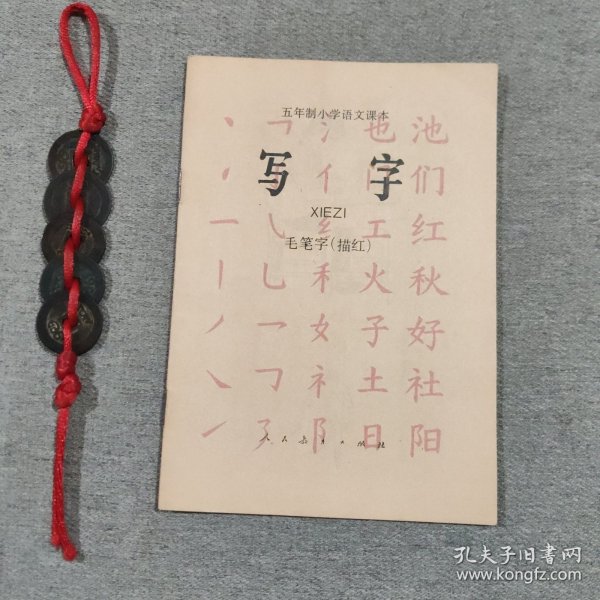 五年制小学语文课本
写字
XIEZI
毛笔字(描红)
丶 ㇇ 氵 也 池
亻 门 们
一 乁 纟 工 红
丨 乚 禾 火 秋
丿 乛 女 子 好
㇏ ㇆ 礻 土 社
㇀ 阝 日 阳
人民教育出版社
孔夫子旧书网
www.kongfz.com